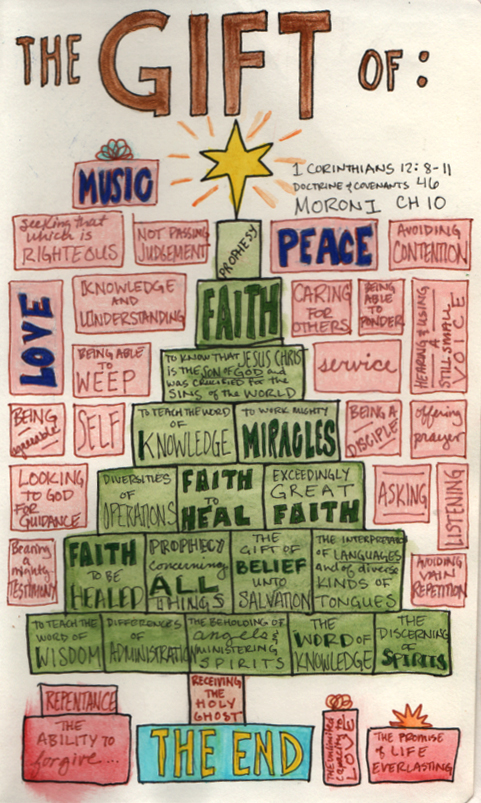 THE GIFT OF:
1 CORINTHIANS 12: 8-11
DOCTRINE & COVENANTS 46
MORONI CH 10
MUSIC
seeking that
which is
RIGHTEOUS
NOT PASSING
JUDGEMENT
PROPHESY
PEACE
AVOIDING
CONTENTION
LOVE
KNOWLEDGE
AND
UNDERSTANDING
FAITH
CARING
FOR
OTHERS
BEING
ABLE
TO
PONDER
HEARING & USING
A
STILL SMALL
VOICE
BEING ABLE
TO
WEEP
TO KNOW THAT JESUS CHRIST
IS THE SON OF GOD AND
WAS CRUCIFIED FOR THE
SINS OF THE WORLD
service
BEING
agreeable
SELF
TO TEACH THE WORD
OF
KNOWLEDGE
TO WORK MIGHTY
MIRACLES
BEING A
DISCIPLE
offering
prayer
LOOKING
TO GOD
FOR
GUIDANCE
DIVERSITIES
OF
OPERATIONS
FAITH
TO
HEAL
EXCEEDINGLY
GREAT
FAITH
ASKING
LISTENING
Bearing
a
mighty
TESTIMONY
FAITH
TO BE
HEALED
PROPHECY
concerning
ALL
THINGS
THE
GIFT OF
BELIEF
UNTO
SALVATION
THE INTERPRETATION
OF LANGUAGES
and of diverse
KINDS OF
TONGUES
AVOIDING
VAIN
REPETITION
TO TEACH THE
WORD OF
WISDOM
DIFFERENCES
OF
ADMINISTRATION
THE BEHOLDING OF
angels &
MINISTERING
SPIRITS
THE
WORD OF
KNOWLEDGE
THE
DISCERNING
OF
SPIRITS
REPENTANCE
THE
ABILITY TO
forgive...
RECEIVING
THE
HOLY
GHOST
THE END
THE unlimited
capacity to
LOVE
THE PROMISE
of LIFE
EVERLASTING